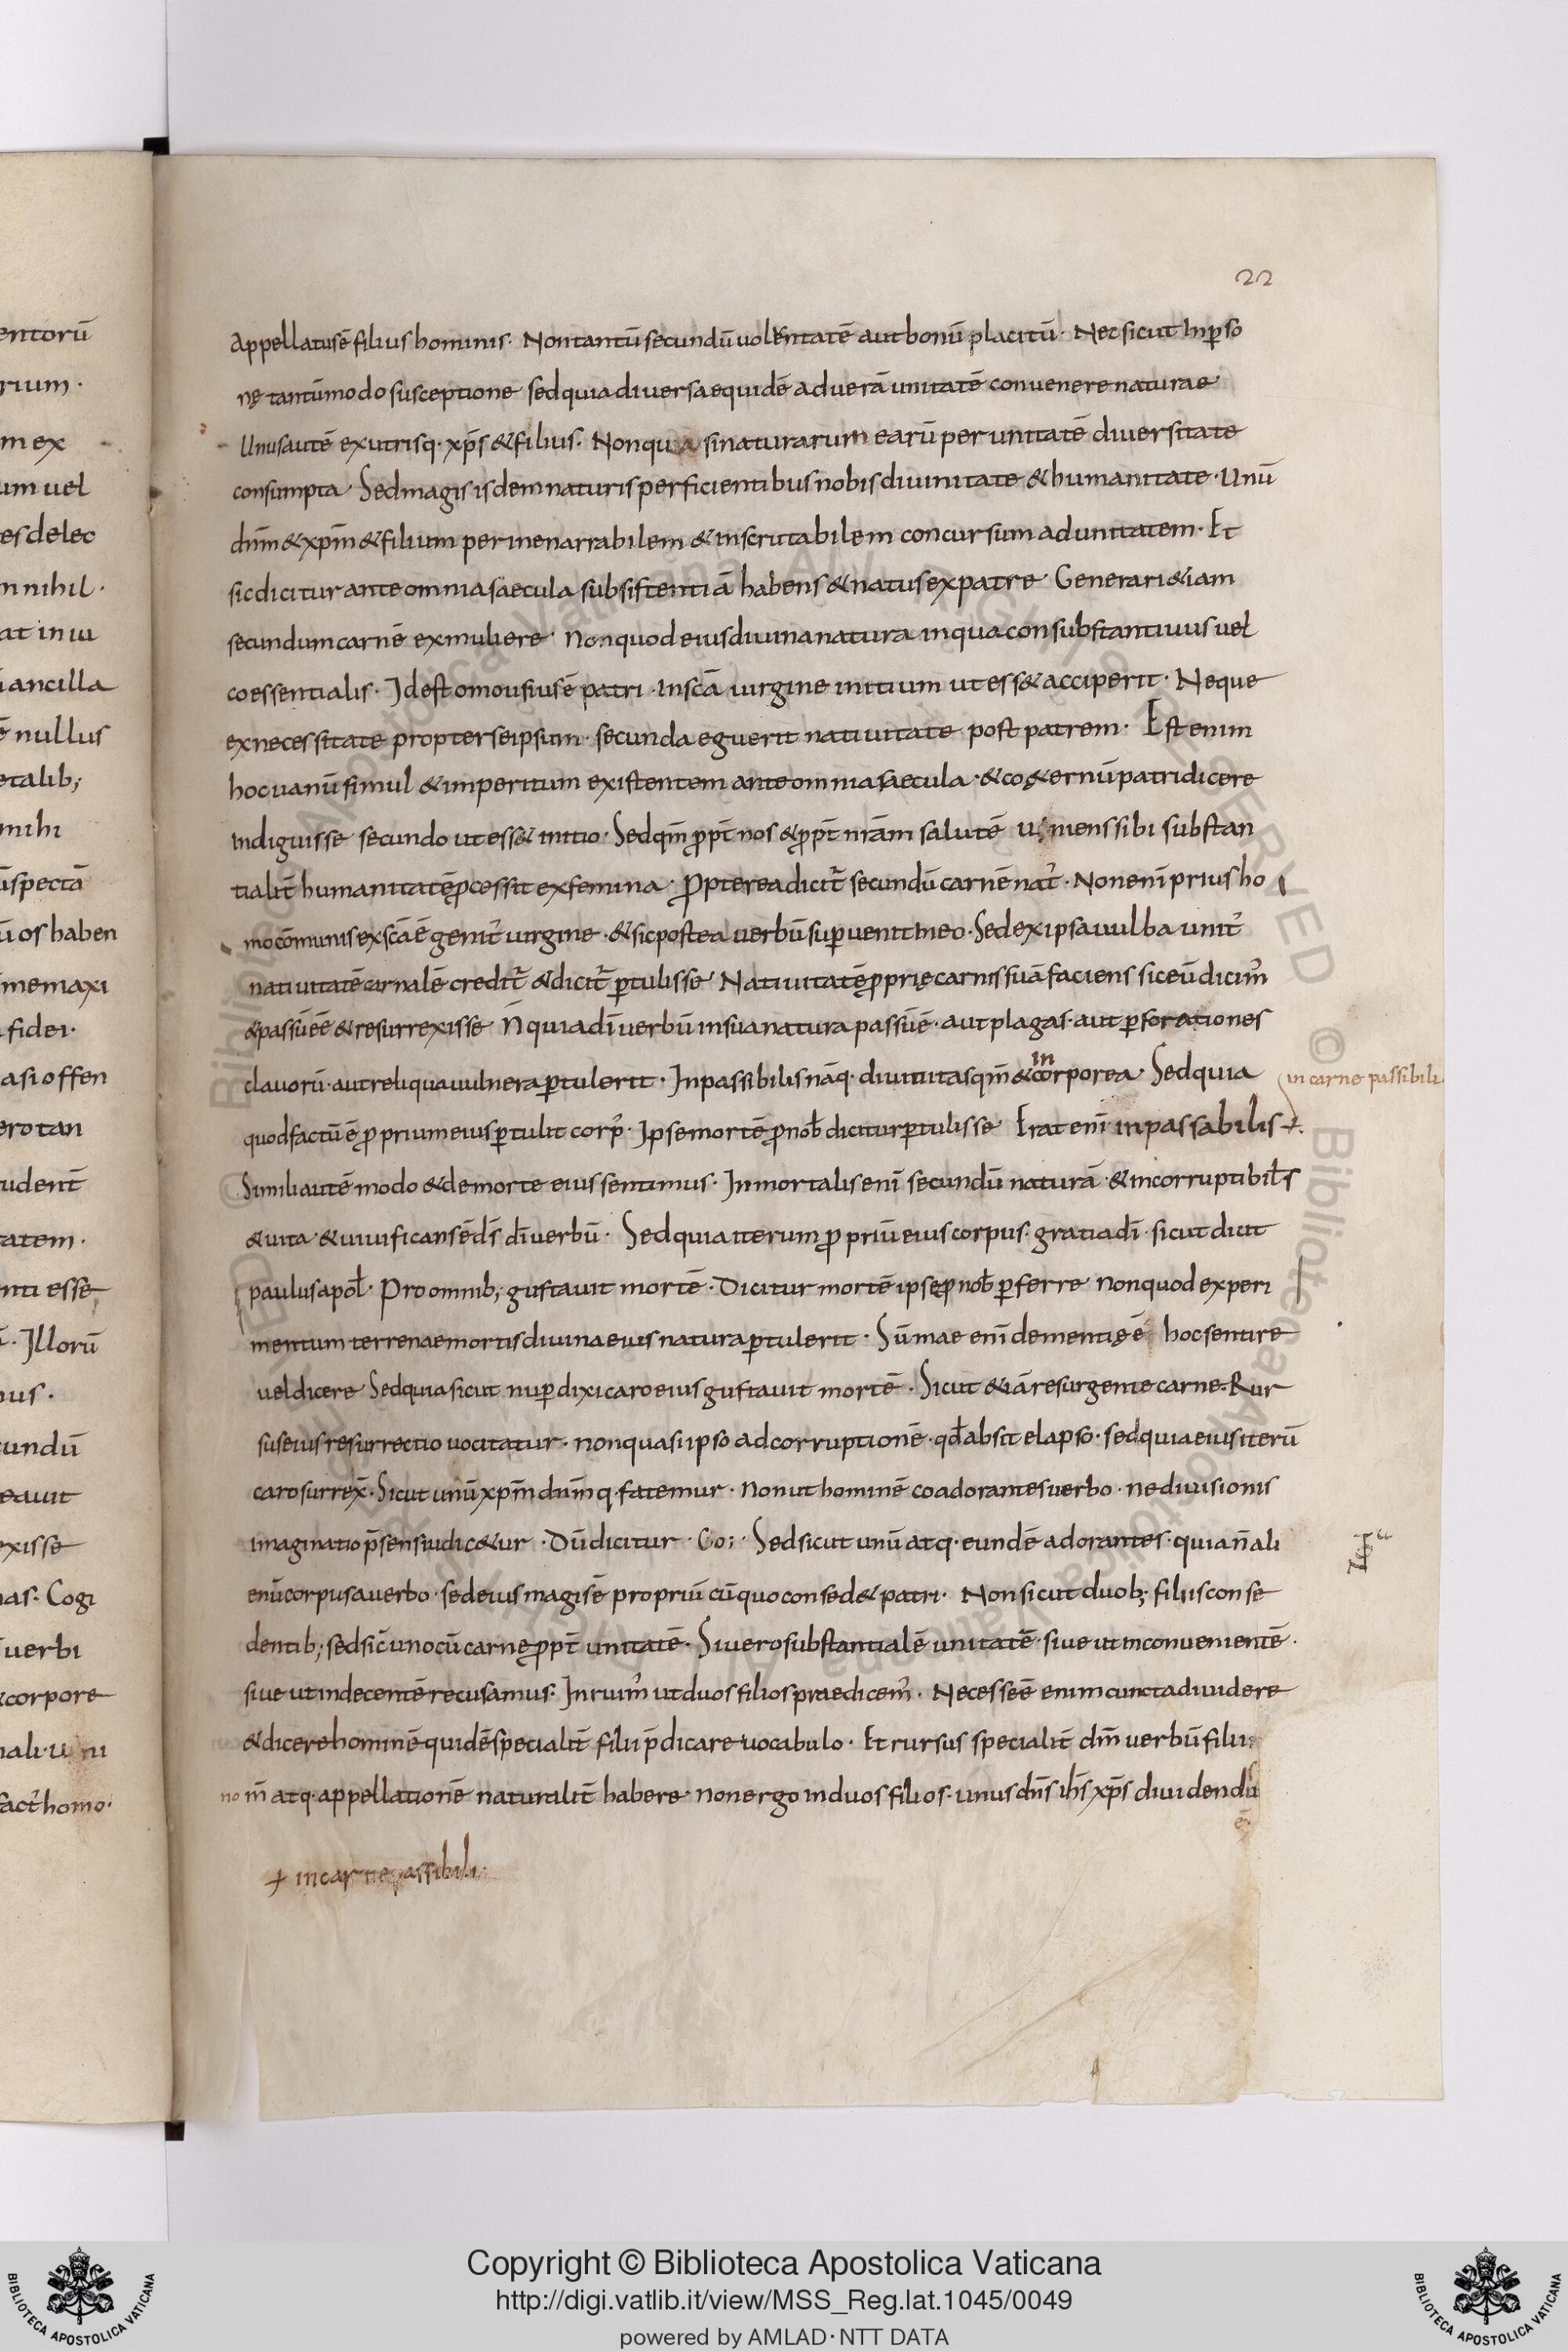 22
appellatus ē filius hominis · Non tantū secundū voluntatē aut bonū placitū · Nec sicut in p̱so
nę tantūmodo susceptione sed quia diversae quidē ad verā unitatē convenere naturae ·
Unus autē ex utrisq · xp̄s & filius · Non qua si naturarum earū per unitatē diversitate
consumpta · Sed magis isdem naturis perficientibus nobis divinitate & humanitate · Unū
dn̄m & xp̄m & filium per inenarrabilem & inscrutabilem concursum ad unitatem · Et
sic dicitur ante omnia saecula subsistentiā habens & natus ex patre · Generari & iam
secundum carnē ex muliere · Non quod eius divina natura in qua consubstantiuus vel
coessentialis · Id est omousius ē patri · in sc̄ā virgine initium ut ess& acciperit · Neque
ex necessitate propter se ipsum · secunda eguerit nativitate post patrem · Est enim
hoc vanū simul & imperitum existentem ante omnia saecula · & co&ernū patri dicere
indiguisse secundo ut ess& initio · Sed qm̄ ꝓpt̄ nos & ꝓpt̄ nr̄am salutē u;niens sibi substan
tialit̄ humanitatē ꝓcessit ex femina · Ꝓpterea dicit̄ secundū carnē nat᾽ · Non enī prius ho
mo cōmunis ex sc̄ā ē genit᾽ virgine · & sic postea verbū sup̱venit in eo · Sed ex ipsa vulba unit᾽
nativitatē carnalē credit̄ & dicit̄ p̱tulisse · Nativitatē ꝓprię carnis suā faciens sic eū dicim᾽
& passū ēē & resurrexisse N̄ quia dī verbū in sua natura passū ē · aut plagas · aut p̱forationes
clavorū · aut reliqua vulnera p̱tulerit · Inpassibilis nāq · divinitas qm̄ & incorporea · Sed quia
in carne passibili
quod factū ē ꝓprium eius p̱tulit corp᾽ · Ipse mortē ꝓ nob̄ dicitur p̱tulisse Erat enī inpassabilis +
Simili autē modo & de morte eius sentimus · Inmortalis enī secundū naturā & incorruptibil̄s
& vita & vivificans ē d̄s dī verbū · Sed quia iterum ꝓpriū eius corpus · gratia dī · sicut dicit
paulus apol̄ · Pro omnib; gustavit mortē · Dicitur mortē ipse ꝓ nob̄ p̱ferre Non quod experi
mentum terrenae mortis divina eius natura p̱tulerit · Sūmae enī dementię ē hoc sentire
vel dicere Sed quia sicut nup̱ dixi caro eius gustavit mortē · Sicut & iā resurgente carne · Rur
sus eius resurrectio vocitatur · non quasi ipso ad corruptionē · qd̄ absit elapso · sed quia eius iterū
caro surrex̄ · Sicut unū xp̄m dn̄mq · fatemur · Non ut hominē coadorantes verbo · ne divisionis
imaginatio p̄sens iudic&ur · Dū dicitur · Co; Sed sicut unū atq · eundē adorantes · quia n̄ ali
enū corpus a verbo · sed eius magis ē propriū cū quo consed& patri · Non sicut duob; filiis conse
dentib; sed sic̄ uno cū carne ꝓpt̄ unitatē · Si vero substantialē unitatē · sive ut inconvenientē ·
sive ut indecentē recusamus · Inruim᾽ ut duos filios praedicem᾽ · Necesse ē enim cuncta dividere
& dicere hominē quidē specialit̄ filii p̄dicare vocabulo · Et rursus specialit̄ dm̄ verbū filii
nom̄ atq · appellationē naturalit̄ habere · non ergo in duos filios · unus dn̄s ih̄s xp̄s dividendū
ē
+ in carne passibili ·
entorū
rium ·
m ex
um vel
es delec
m nihil ·
at in iu
ancilla
ē nullus
etalib;
mihi
specta
ū os haben
me maxi
fidei ·
asi offen
ero tan
udent̄
tatem ·
nti esse
· Illorū
nus ·
cundū
eavit
exisse
nas · Cogi
verbi
corpore
nali · u ni
fact᾽ homo ·
Copyright © Biblioteca Apostolica Vaticana
http://digi.vatlib.it/view/MSS_Reg.lat.1045/0049
powered by AMLAD · NTT DATA
BIBLIOTECA APOSTOLICA VATICANA
BIBLIOTECA APOSTOLICA VATICANA